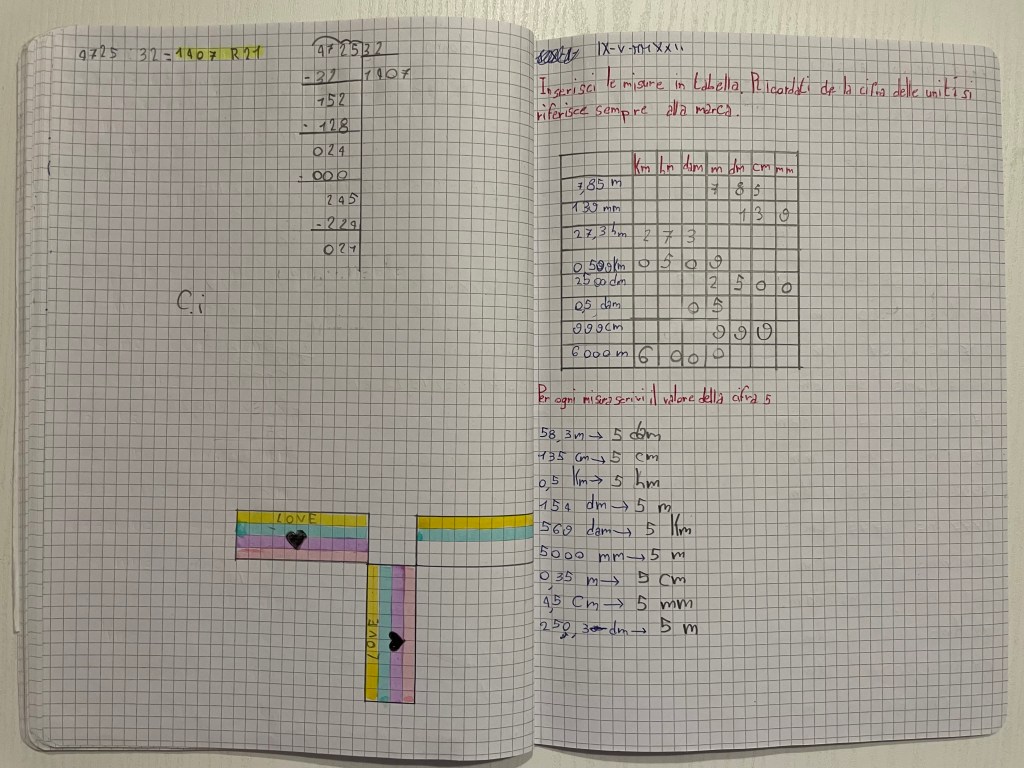 4725 : 32 = 1407 R21
4725 32
- 32 1407
152
- 128
024
- 000
245
- 224
021
C.i
LOVE
LOVE
Inserisci le misure in tabella. Ricordati che la cifra delle unità si
riferisce sempre alla marca.
Km hm dam m dm cm mm
7,85 m 7 8 5
139 mm 1 3 9
27,3 hm 2 7 3
0,509 Km 0 5 0 9
2500 dm 2 5 0 0
0,5 dam 0 5
999 cm 9 9 9
6000 m 6 0 0 0
Per ogni misura scrivi il valore della cifra 5
58,3 m → 5 dam
135 cm → 5 cm
0,5 Km → 5 hm
154 dm → 5 m
569 dam → 5 Km
5000 mm → 5 m
0,35 m → 5 cm
4,5 cm → 5 mm
250,3 dm → 5 m